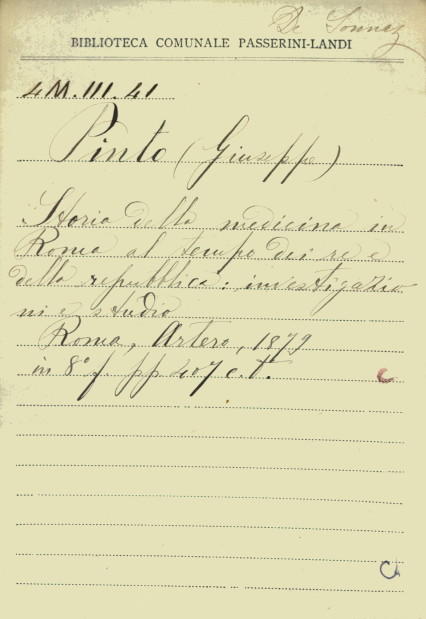 De Sonnaz
BIBLIOTECA COMUNALE PASSERINI-LANDI
4M.III.41
Pinto (Giuseppe)
Storia della medicina in
Roma al tempo dei re e
della repubblica: investigazio
ni e studio
Roma, Artero, 1879
in 8º f. pp 407 c.t.